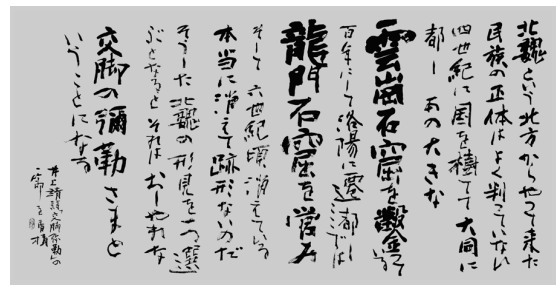 北魏という北方からやって来た
民族の正体はよく判っていない
四世紀に国を樹てて大同に
都し あの大きな
雲崗石窟を鑿って
百年にして洛陽に遷都しては
龍門石窟を営み
そして 六世紀頃消えている
本当に消えて跡形ないのだ
そうした北魏の形見を一つ選
ぶとなるとそれはおしゃれな
交脚の彌勒さまと
いうことになる
井上靖 交脚弥勒の
一節を